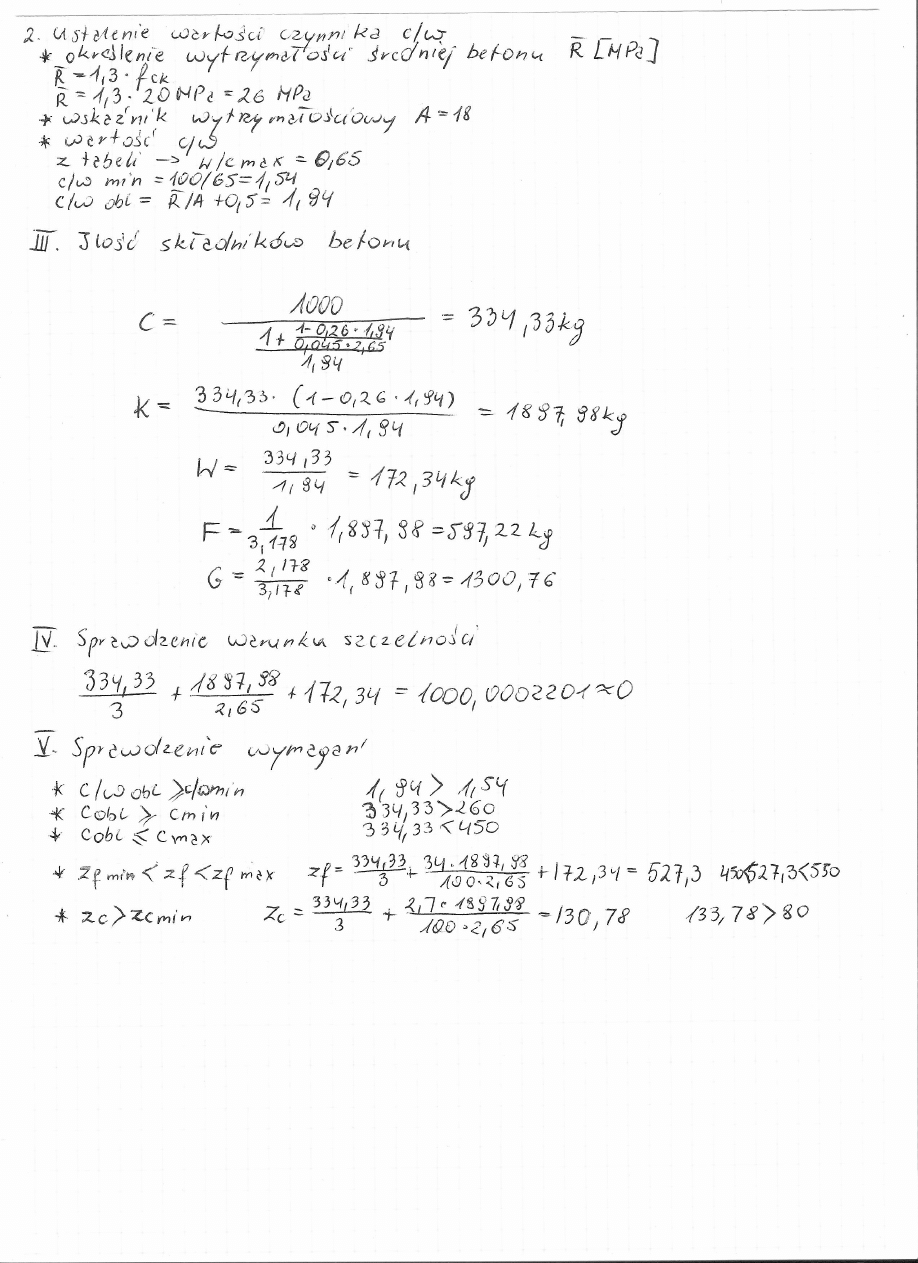 2. Ustalenie wartości czynnika c/w
* określenie wytrzymałości średniej betonu R̄ [MPa]
R̄ = 1,3 · fck
R̄ = 1,3 · 20 MPa = 26 MPa
* wskaźnik wytrzymałościowy A = 18
* wartość c/w
z tabeli -> w/c max = 0,65
c/w min = 100/65 = 1,54
c/w obl = R̄/A + 0,5 = 1,94
III. Ilość składników betonu
C = 1000 / ((1 + (1 - 0,26 · 1,94) / (0,045 · 2,65)) / 1,94) = 334,33 kg
K = 334,33 · (1 - 0,26 · 1,94) / (0,045 · 1,94) = 1897,98 kg
W = 334,33 / 1,94 = 172,34 kg
F = 1 / 3,178 · 1,897,98 = 597,22 kg
G = 2,178 / 3,178 · 1,897,98 = 1300,76
IV. Sprawdzenie warunku szczelności
334,33 / 3 + 1897,98 / 2,65 + 172,34 = 1000,0002201 ≈ 0
V. Sprawdzenie wymagań
* c/w obl ⩾ c/w min 1,94 > 1,54
* Cobl ⩾ cmin 334,33 > 260
* Cobl ⩽ cmax 334,33 < 450
* zf min < zf < zf max zf = 334,33 / 3 + 34 · 1897,98 / 100 · 2,65 + 172,34 = 527,3 450<527,3<550
* zc > zcmin Zc = 334,33 / 3 + 2,7 · 1897,98 / 100 · 2,65 = 130,78 133,78 > 80